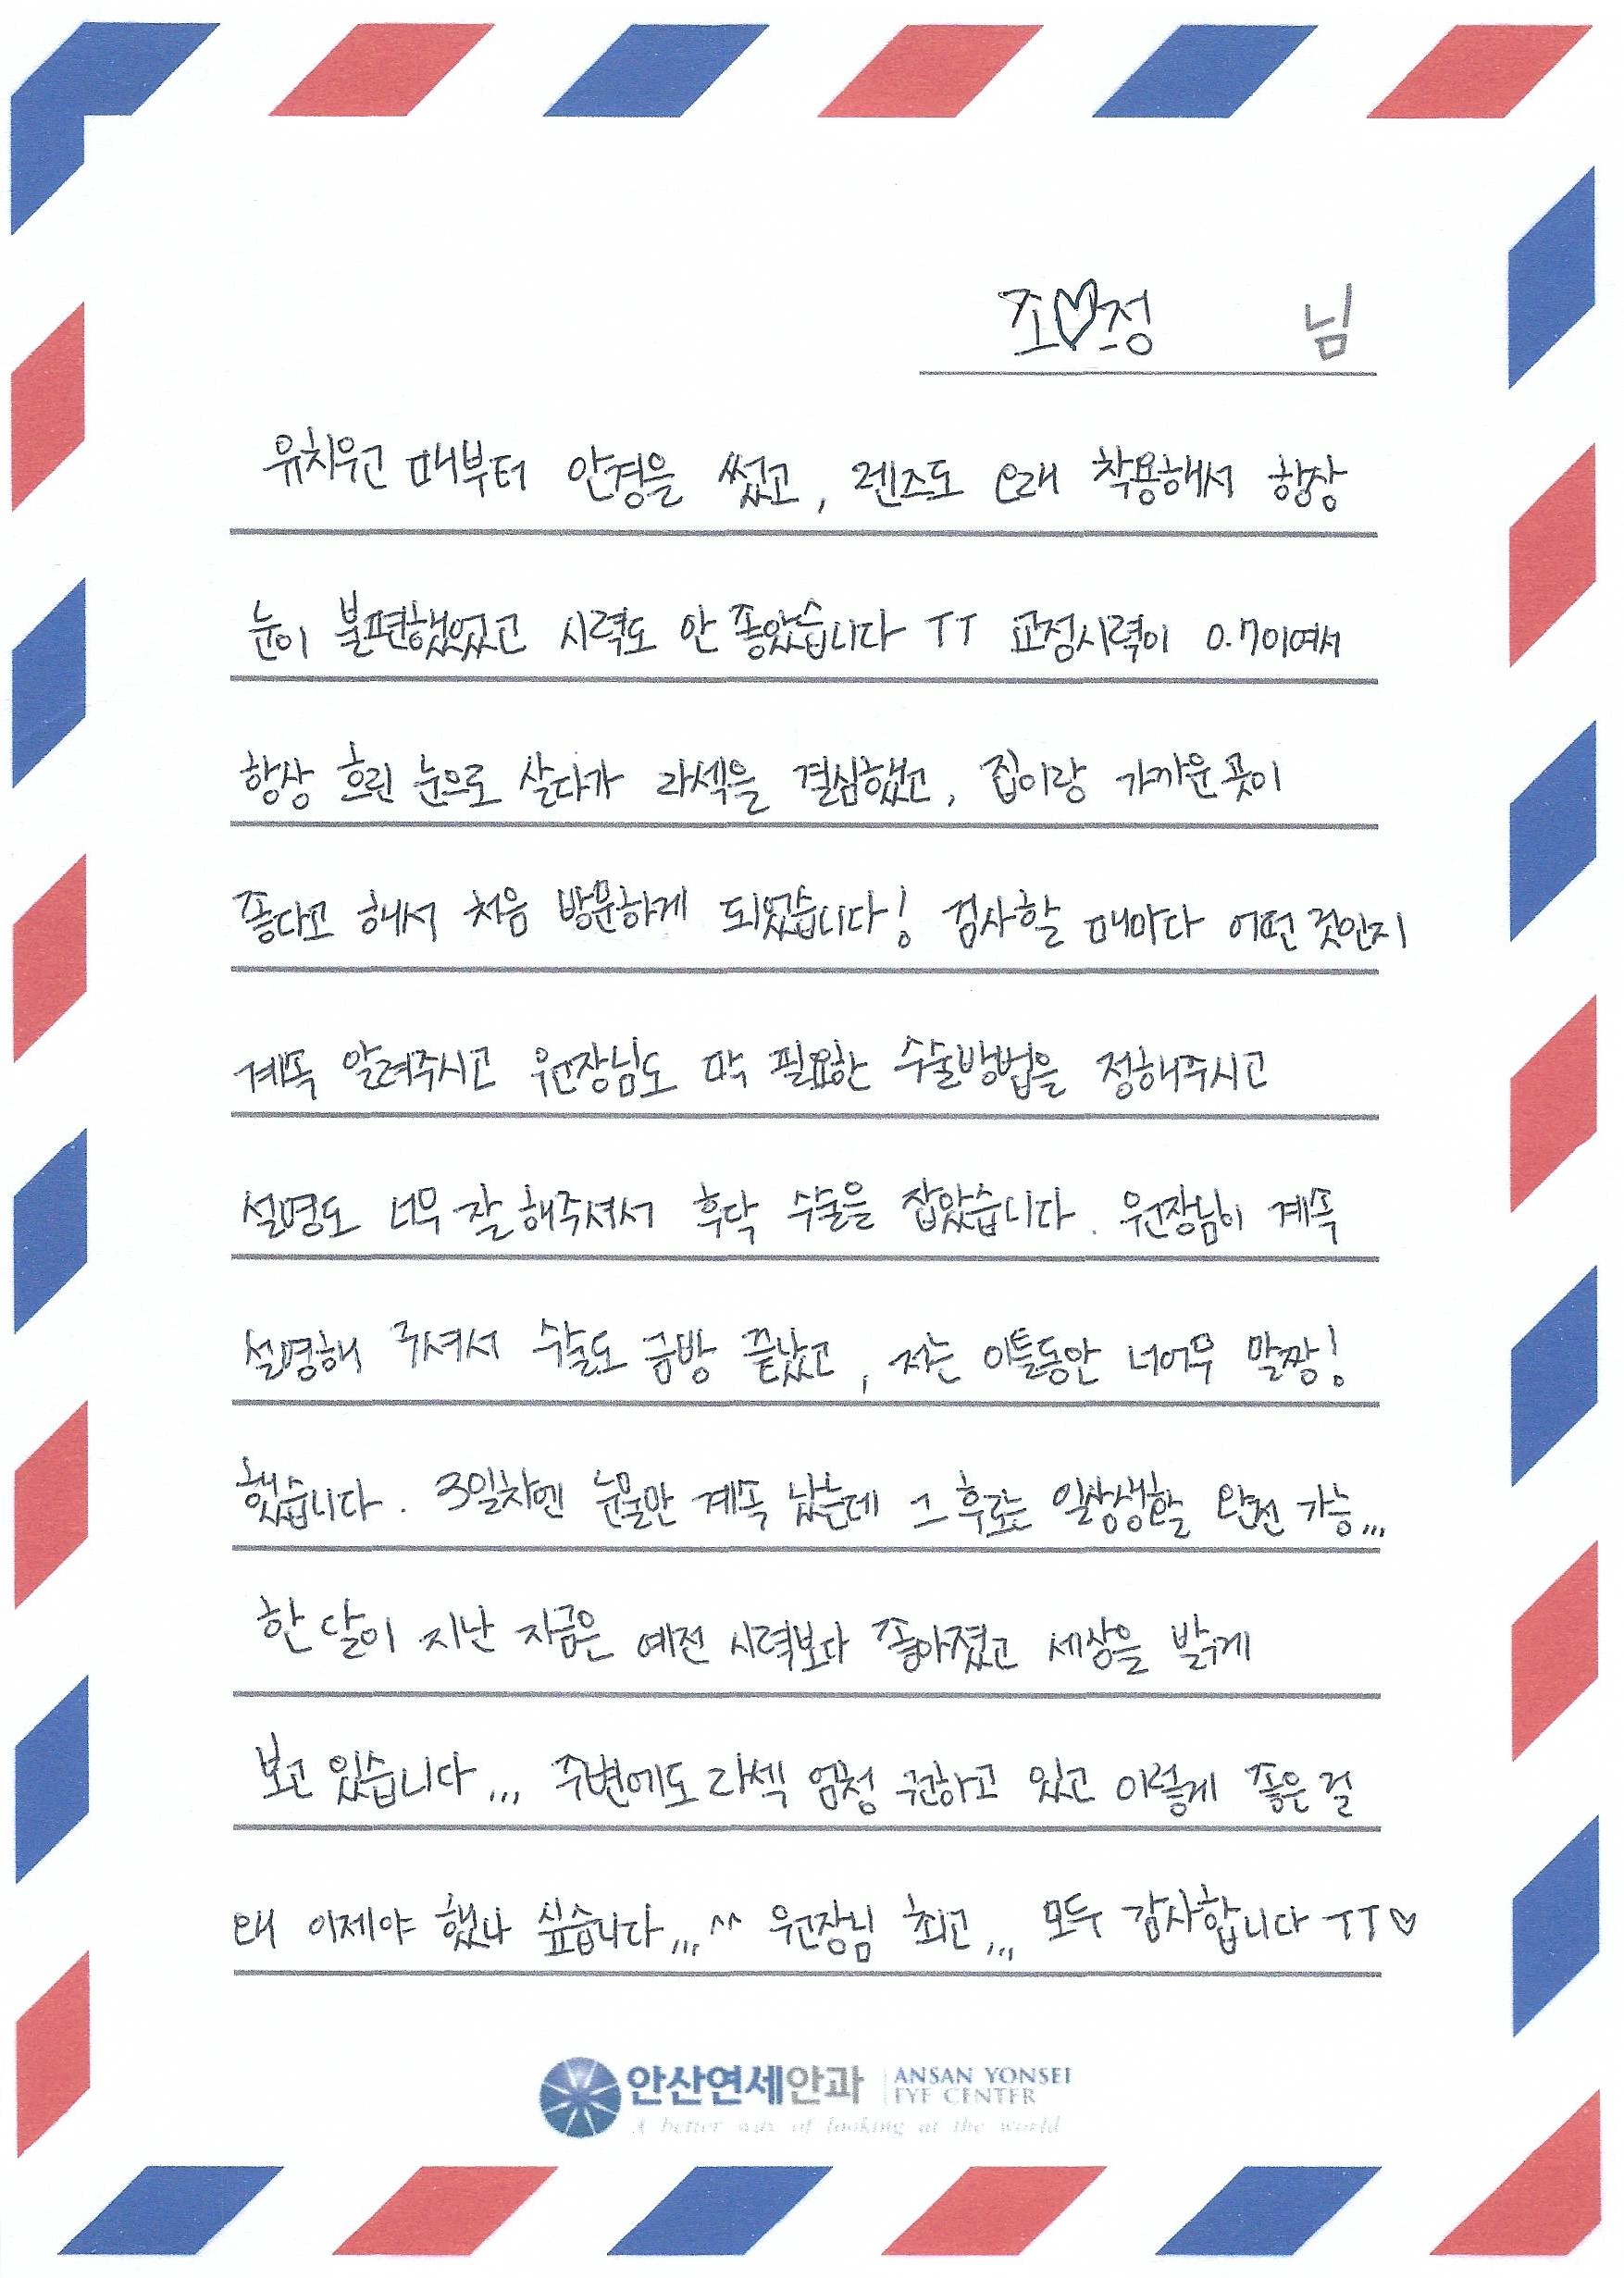 조♡정 님
유치원 때부터 안경을 썼고, 렌즈도 오래 착용해서 항상
눈이 불편했었고 시력도 안 좋았습니다 ㅜㅜ 교정시력이 0.7이여서
항상 흐린 눈으로 살다가 라섹을 결심했고, 집이랑 가까운 곳이
좋다고 해서 처음 방문하게 되었습니다! 검사할 때마다 어떤 것인지
계속 알려주시고 원장님도 딱 필요한 수술방법을 정해주시고
설명도 너무 잘 해주셔서 후딱 수술을 잡았습니다. 원장님이 계속
설명해 주셔서 수술도 금방 끝났고, 저는 이틀동안 너어무 말짱!
했습니다. 3일차엔 눈물만 계속 났는데 그 후로는 일상생활 완전 가능...
한 달이 지난 지금은 예전 시력보다 좋아졌고 세상을 밝게
보고 있습니다... 주변에도 라섹 엄청 권하고 있고 이렇게 좋은 걸
왜 이제야 했나 싶습니다...^^ 원장님 최고... 모두 감사합니다 ㅜㅜ♡
안산연세안과 ANSAN YONSEI
EYE CENTER
A better way of looking at the world